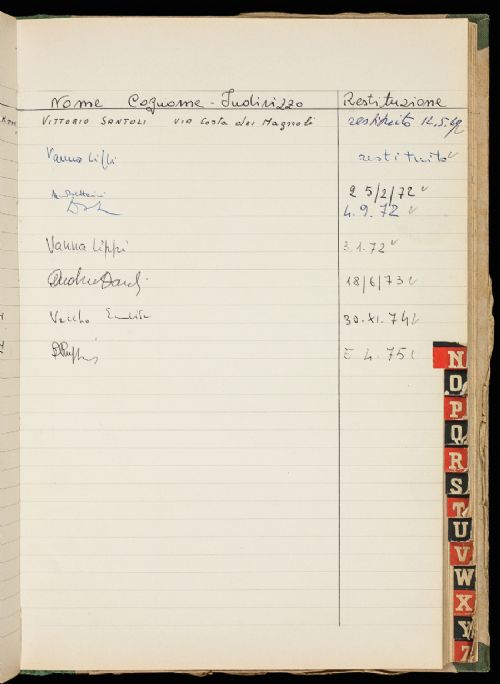 Nome Cognome - Indirizzo Restituzione
VITTORIO SANTOLI VIA Costa dei Magnoli restituito 12.5.
Vanna Lippi restituito
25/2/72
4.9.72
Vanna Lippi 3.1.72
18/6/73
Vecchio 30.XI.74
4.75
N
O
P
Q
R
S
T
U
V
W
X
Y
Z